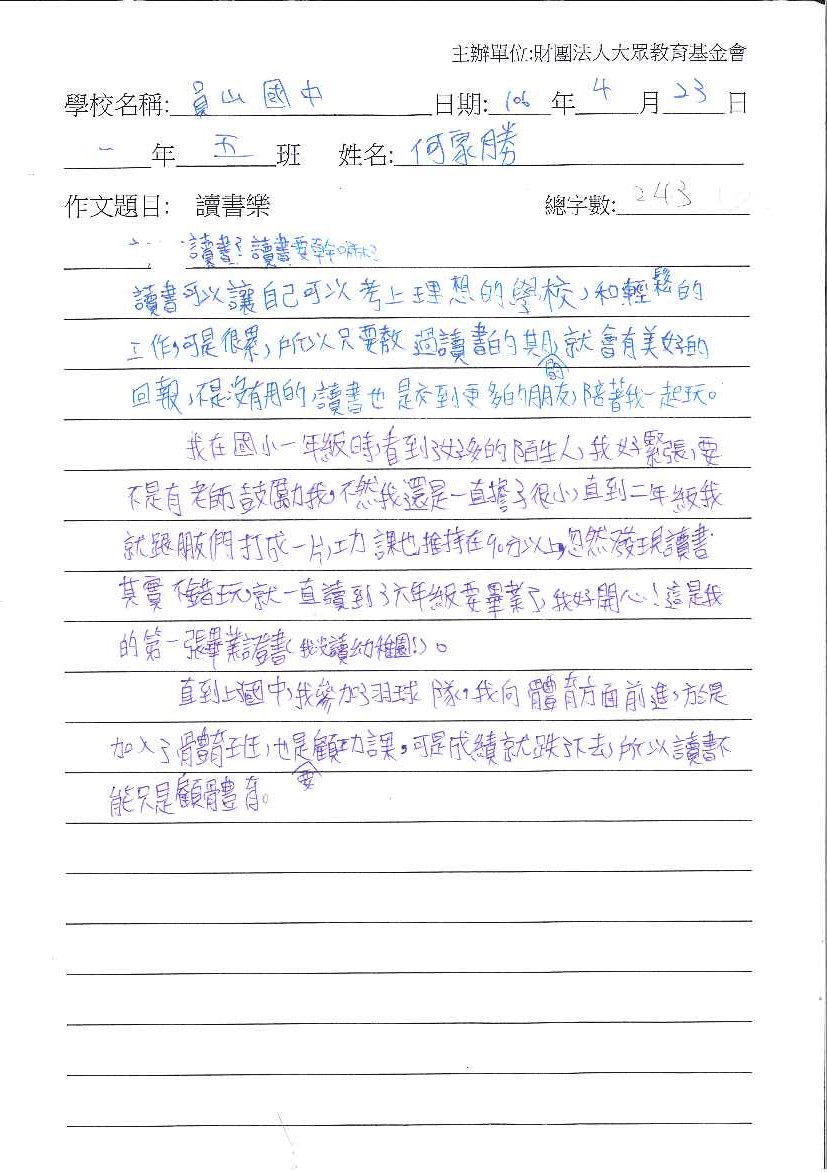 主辦單位:財團法人大眾教育基金會
學校名稱: 員山國中 日期: 106 年 4 月 23 日
一 年 五 班 姓名: 何家勝
作文題目: 讀書樂 總字數: 243
讀書?讀書要幹嘛?
讀書可以讓自己可以考上理想的學校,和輕鬆的
工作,可是很累,所以只要熬過讀書的期間,就會有美好的
回報,不是沒有用的,讀書也是交到更多的朋友,陪著我一起玩。
我在國小一年級時,看到了好多的陌生人,我好緊張,要
不是有老師鼓勵我,不然我還是一直擔子很小,直到二年級我
就跟朋友們打成一片,功課也維持在90分以上,忽然發現讀書
其實不錯玩,就一直讀到了六年級要畢業了,我好開心!這是我
的第一張畢業證書(我沒讀幼稚園!)。
直到上國中,我參加了羽球隊,我向體育方面前進,於是
加入了體育班,也是要顧功課,可是成績就跌了下去,所以讀書不
能只是顧體育。